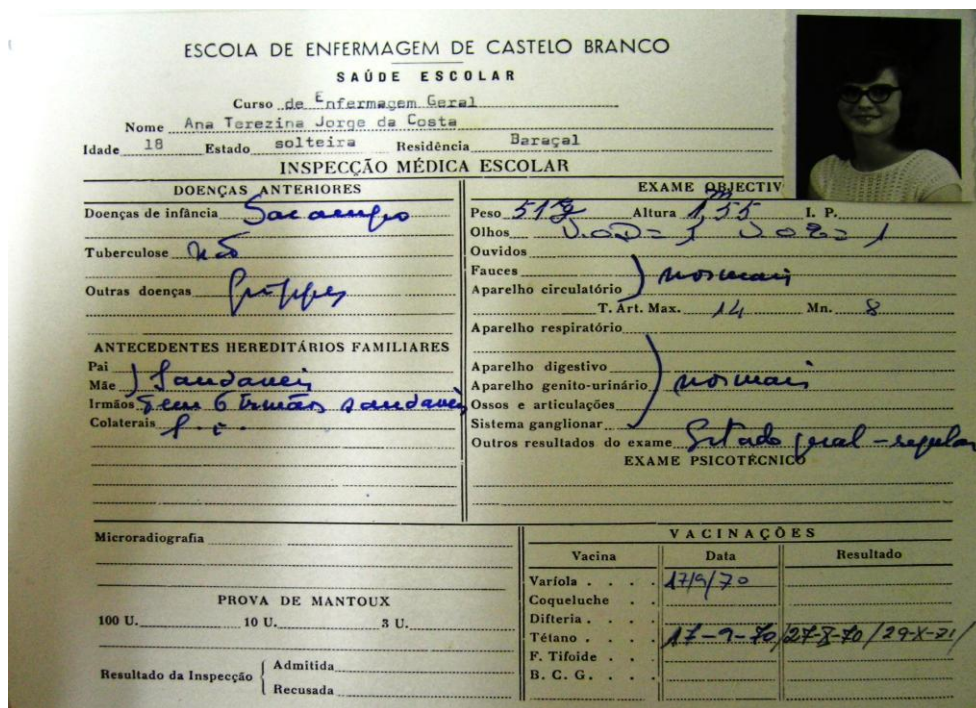 ESCOLA DE ENFERMAGEM DE CASTELO BRANCO
SAÚDE ESCOLAR
Curso de Enfermagem Geral
Nome Ana Terezina Jorge da Costa
Idade 18 Estado solteira Residência Baraçal
INSPECÇÃO MÉDICA ESCOLAR
DOENÇAS ANTERIORES
Doenças de infância Sarampo
Tuberculose Não
Outras doenças Grippes
ANTECEDENTES HEREDITÁRIOS FAMILIARES
Pai
Mãe Saudaveis
Irmãos Tem 6 Irmãos saudaveis
Colaterais
EXAME OBJECTIV
Peso 51 Altura 1,55 m I. P.
Olhos V.O.D = 1 V O E = 1
Ouvidos
Fauces normais
Aparelho circulatório
T. Art. Max. 14 Mn. 8
Aparelho respiratório
Aparelho digestivo
Aparelho genito-urinário normais
Ossos e articulações
Sistema ganglionar
Outros resultados do exame Estado geral - regular
EXAME PSICOTÉCNICO
Microradiografia
PROVA DE MANTOUX
100 U. 10 U. 3 U.
Resultado da Inspecção
Admitida
Recusada
VACINAÇÕES
Vacina Data Resultado
Varíola . . . . 17/9/70
Coqueluche . .
Difteria . . . .
Tétano . . . . 17-9-70/27-X-70/29-X-71/
F. Tifoide . . .
B. C. G. . . . .